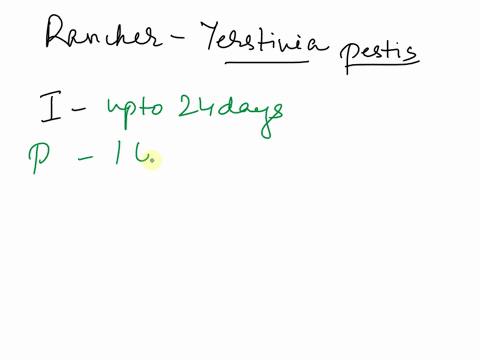 Rancher - Yerstinia pestis
I - upto 24 days
P - 1